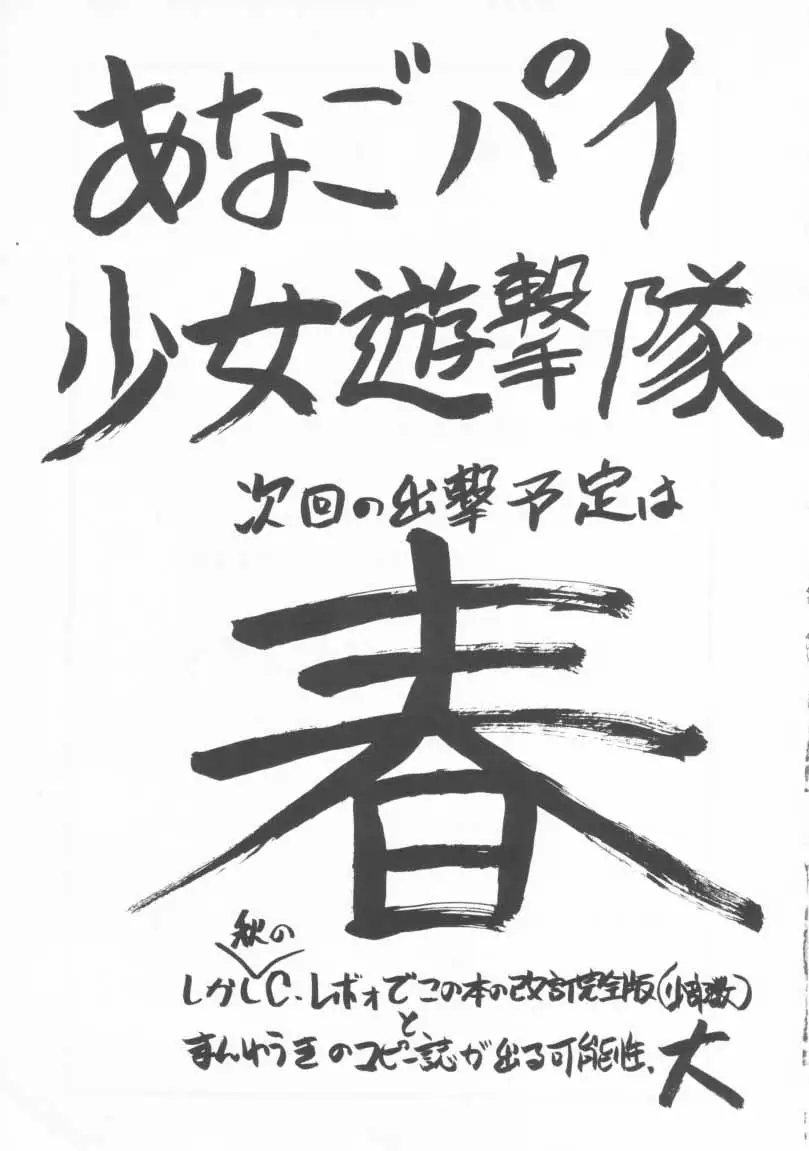 あなごパイ
少女遊撃隊
次回の出撃予定は
春
秋の
しかしC.レボォでこの本の改訂完全版(少部数)
と、
まんゆうきのコピー誌が出る可能性、大